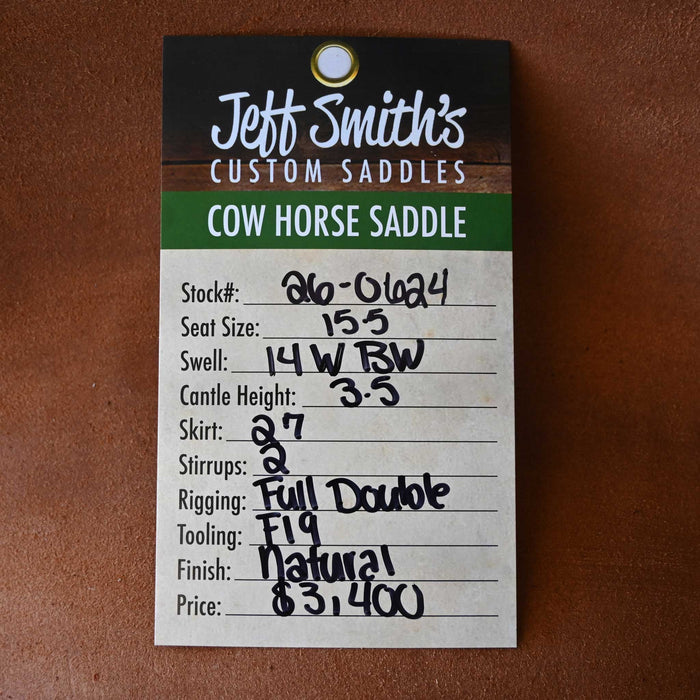 Jeff Smith's
CUSTOM SADDLES
COW HORSE SADDLE
Stock#: 26-0624
Seat Size: 15.5
Swell: 14 W BW
Cantle Height: 3.5
Skirt: 27
Stirrups: 2
Rigging: Full Double
Tooling: F19
Finish: Natural
Price: $3,400